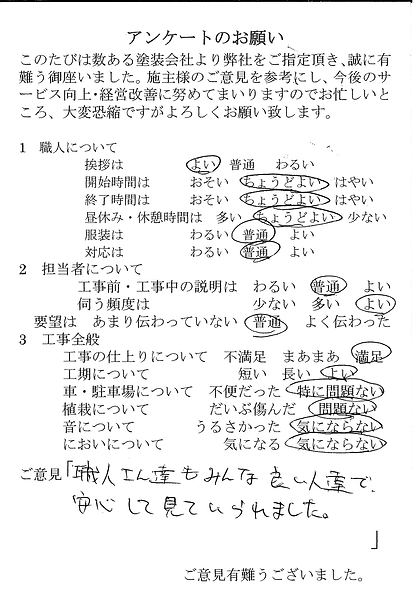 アンケートのお願い
このたびは数ある塗装会社より弊社をご指定頂き、誠に有
難う御座いました。施主様のご意見を参考にし、今後のサ
ービス向上・経営改善に努めてまいりますのでお忙しいと
ころ、大変恐縮ですがよろしくお願い致します。
1 職人について
挨拶は よい 普通 わるい
開始時間は おそい ちょうどよい はやい
終了時間は おそい ちょうどよい はやい
昼休み・休憩時間は 多い ちょうどよい 少ない
服装は わるい 普通 よい
対応は わるい 普通 よい
2 担当者について
工事前・工事中の説明は わるい 普通 よい
伺う頻度は 少ない 多い よい
要望は あまり伝わっていない 普通 よく伝わった
3 工事全般
工事の仕上りについて 不満足 まあまあ 満足
工期について 短い 長い よい
車・駐車場について 不便だった 特に問題ない
植栽について だいぶ傷んだ 問題ない
音について うるさかった 気にならない
においについて 気になる 気にならない
ご意見「職人さん達もみんな良い人達で、
安心して見ていられました。
」
ご意見有難うございました。